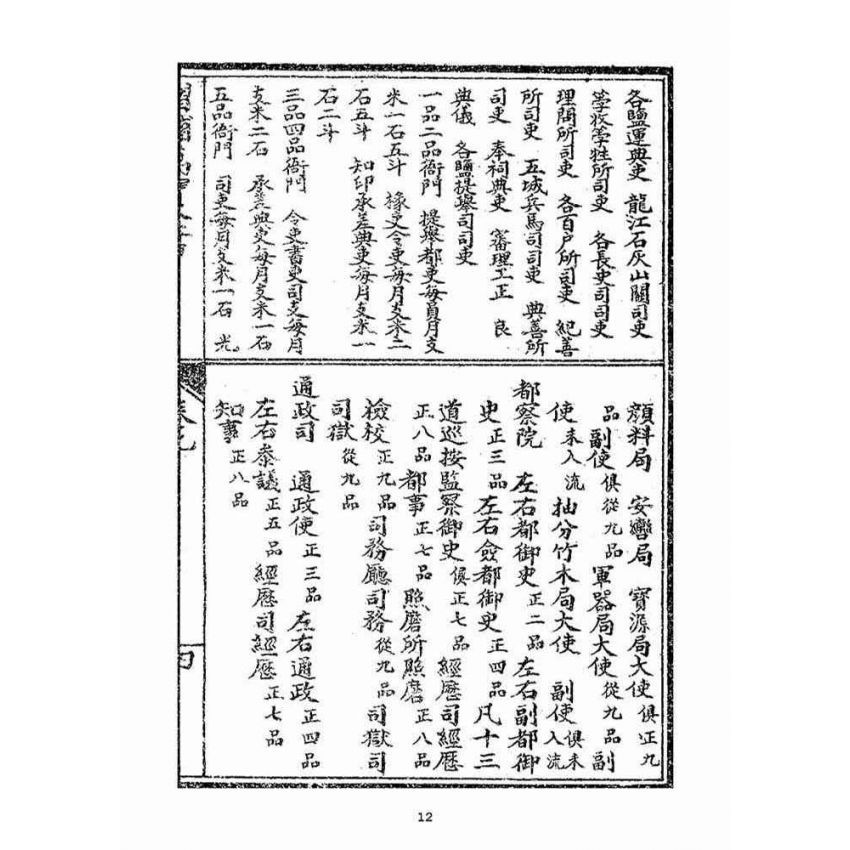 各鹽運典吏　龍江石灰山關司吏
孳牧孳牲所司吏　各長史司司吏
理問所司吏　各百户所司吏　紀善
所司吏　五城兵馬司司吏　典善所
司吏　奉祠典吏　審理工正　良
典儀　各鹽提舉司司吏
一品二品衙門　提舉都吏每員月支
米一石五斗　掾史令吏每月支米二
石五斗　知印承差典吏每月支米一
石二斗
三品四品衙門　令吏書吏司支每月
支米二石　承差典吏每月支米一石
五品衙門　司吏每月支米一石　光。
顔料局　安轡局　寶源局大使俱正九
品副使俱從九品軍器局大使從九品副
使未入流　抽分竹木局大使　副使俱未入流
都察院　左右都御史正二品　左右副都御
史正三品左右僉都御史正四品凡十三
道巡按監察御史俱正七品　經歷司經歷
正八品都事正七品照磨所照磨正八品
檢校正九品司務廳司務從九品司獄司
司獄從九品
通政司　通政使正三品　左右通政正四品
左右叅議正五品經歷司經歷正七品
知事正八品
卷九
12